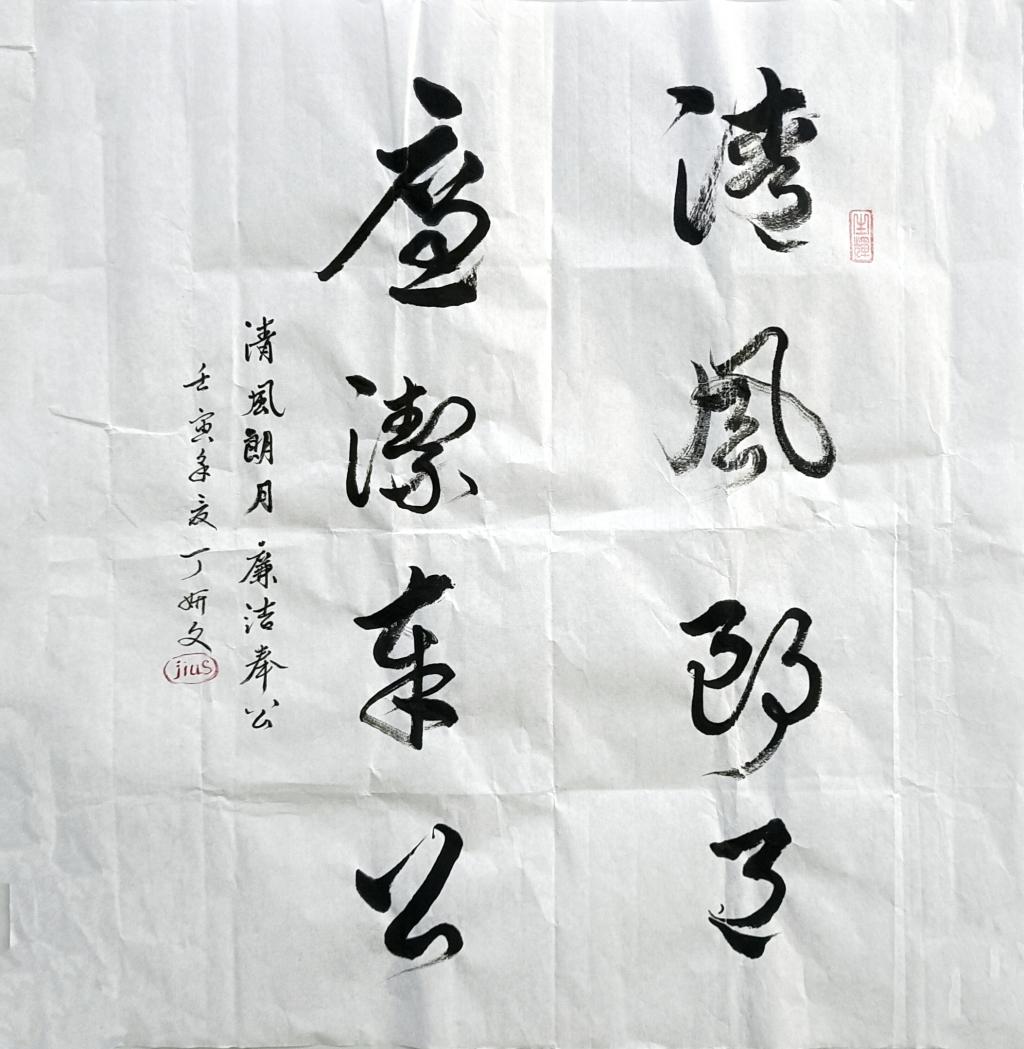 清風朗月
廉潔奉公
清風朗月 廉洁奉公
壬寅年夏 丁妍文
jius